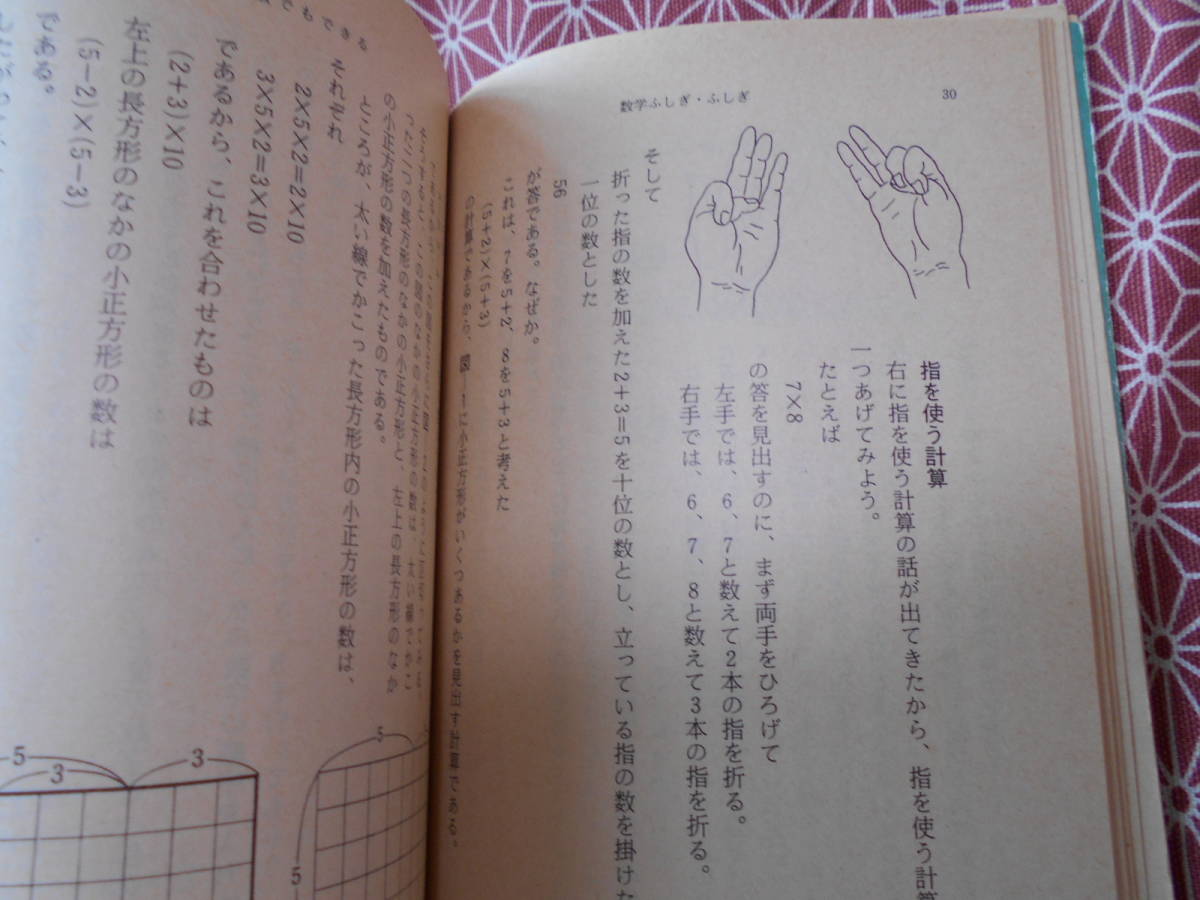 数学ふしぎ・ふしぎ
30
指を使う計算
右に指を使う計算の話が出てきたから、指を使う計算
一つあげてみよう。
たとえば
7×8
の答を見出すのに、まず両手をひろげて
左手では、6、7と数えて2本の指を折る。
右手では、6、7、8と数えて3本の指を折る。
そして
折った指の数を加えた2+3=5を十位の数とし、立っている指の数を掛けた
一位の数とした
56
が答である。なぜか。
これは、7を5+2、8を5+3と考えた
(5+2)×(5+3)
の計算であるから、図—1に小正方形がいくつあるかを見出す計算である。
でもできる
った二つの長方形のなかの小正方形と、左上の長方形のなか
の小正方形の数を加えたものである。
ところが、太い線でかこった長方形内の小正方形の数は、
それぞれ
2×5×2=2×10
3×5×2=3×10
であるから、これを合わせたものは
(2+3)×10
左上の長方形のなかの小正方形の数は
(5−2)×(5−3)
である。
5
3
3
5
5